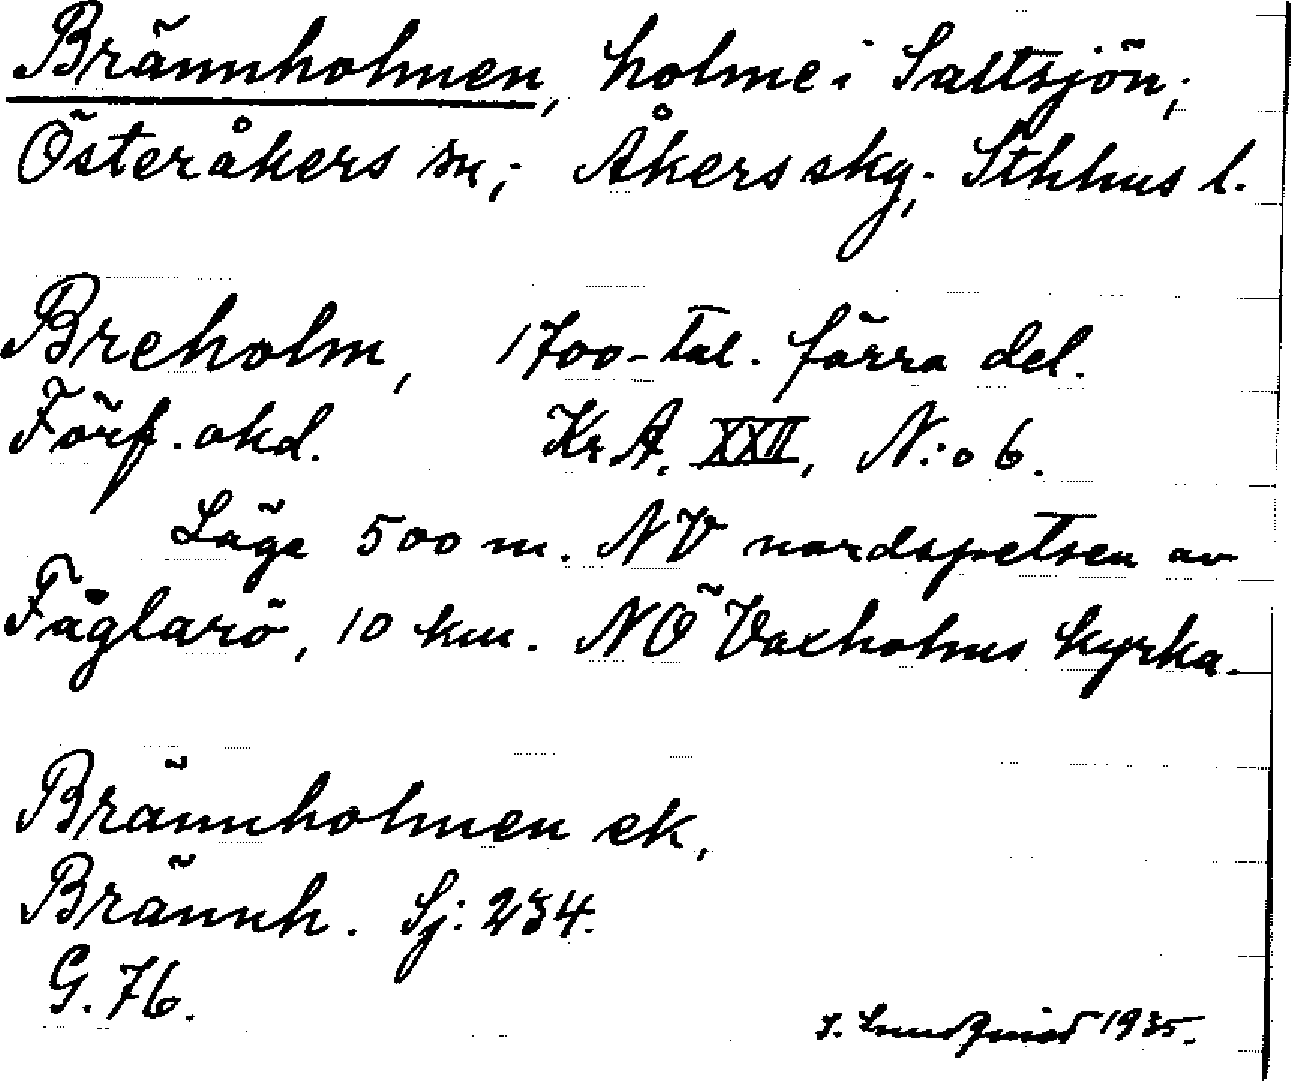 Brännholmen, holme i Saltsjön;
Österåkers sn; Åkers skg; Sthlms l.
Breholm, 1700-tal. förra del.
Förf. okd. Kr.A. XXII, N:o 6.
Läge 500 m. NV nordspetsen av
Fåglarö, 10 km. NÖ Vaxholms kyrka.
Brännholmen ek,
Brännh. Sj: 234.
G. 76.
J. Lundqvist 1935.